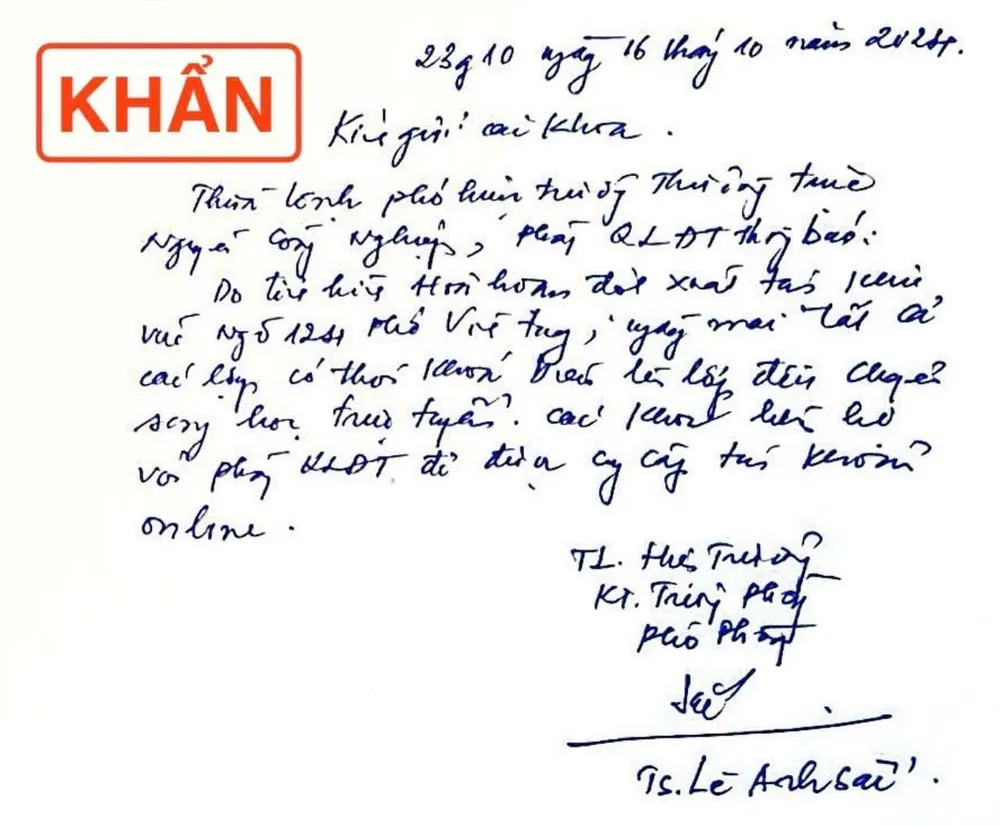 KHẨN
23g10 ngày 16 tháng 10 năm 2024.
Kính gửi các Khoa.
Thừa lệnh phó hiệu trưởng thường trực
Nguyễn Công Nghiệp, phòng QLĐT thông báo:
Do tình hình Hoả hoạn đột xuất tại khu
vực Ngõ 124 phố Vĩnh Tuy, ngày mai tất cả
các lớp có thời khoá biểu lên lớp đều chuyển
sang học trực tuyến. Các khoa liên hệ
với phòng QLĐT để được cung cấp tài khoản
online.
TL. Hiệu Trưởng
KT. Trưởng Phòng
Phó Phòng
TS. Lê Anh